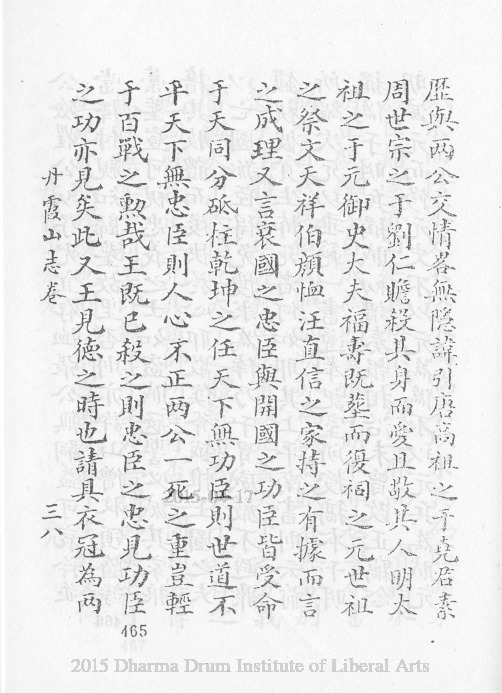 歷與两公交情畧無隱諱引唐高祖之于堯君素
周世宗之于劉仁贍殺其身而愛且敬其人明太
祖之于元御史大夫福壽既塟而復祠之元世祖
之祭文天祥伯顔恤汪直信之家持之有據而言
之成理又言衰國之忠臣與開國之功臣皆受命
于天同分砥柱乾坤之任天下無功臣則世道不
平天下無忠臣則人心不正两公一死之重豈輕
于百戰之勲哉王既已殺之則忠臣之忠見功臣
之功亦見矣此又王見德之時也請具衣冠為两
丹霞山志卷
三八
465
2015 Dharma Drum Institute of Liberal Arts